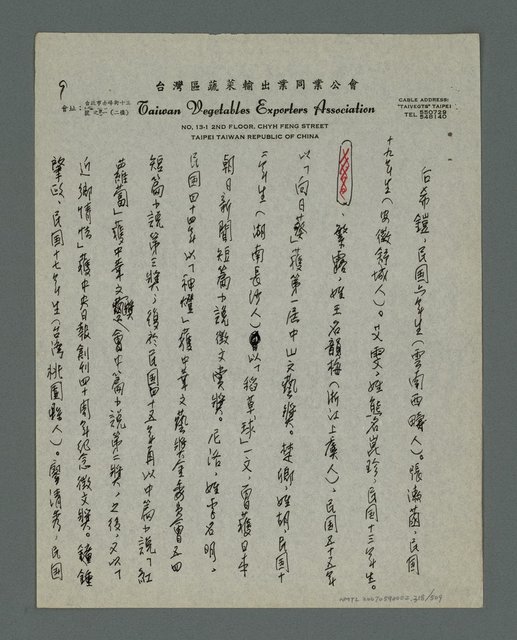 9
台灣區蔬菜輸出業同業公會
會址：台北市赤峰街十三號之一(二樓)
Taiwan Vegetables Exporters Association
CABLE ADDRESS:
"TAIVEGTS" TAIPEI
TEL 550729
548140
NO. 13-1 2ND FLOOR, CHYH FENG STREET
TAIPEI TAIWAN REPUBLIC OF CHINA
呂希鎧，民國六年生(雲南西疇人)。張漱菡，民國
十九年生(安徽舒城人)。艾雯，姓熊名崑珍，民國十三年生。
、繁露，姓王名韻梅(浙江上虞人)，民國五十五年
以「向日葵」獲第一屆中山文藝獎。楚卿，姓胡，民國十
二年生(湖南長沙人)以「稻草球」一文，曾獲日本
朝日新聞短篇小說徵文獎。尼洛，姓李名明，
民國四十四年以「神燈」獲中華文藝獎金委員會五四
短篇小說第三獎，復於民國四十五年再以中篇小說「紅
蘿蔔」獲中華文獎會中篇小說第二獎，之後，又以「
近鄉情怯」獲中央日報創刊四十周年紀念徵文獎。鍾
肇政，民國十七年生(台灣桃園縣人)。廖清秀，民國
NMTL 20070590002, 318/509